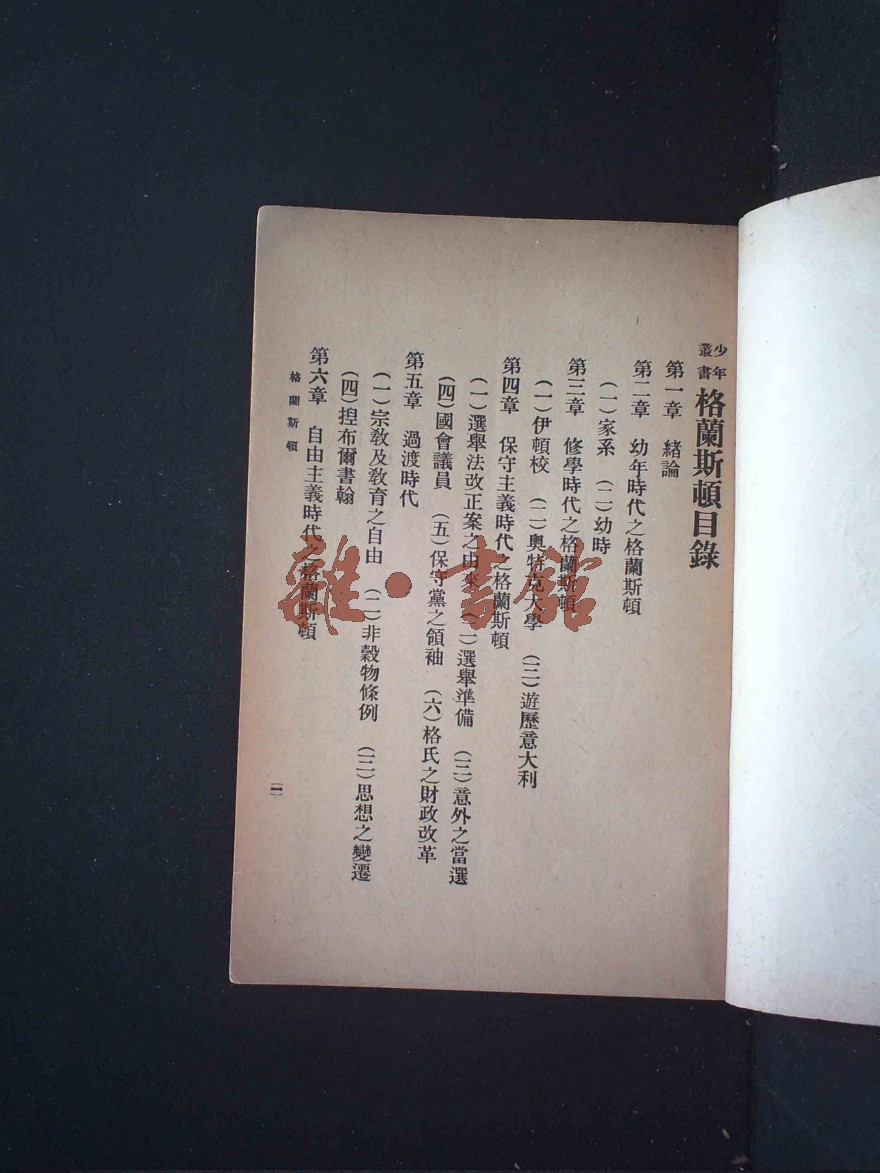 少年叢書 格蘭斯頓目錄
第一章　緒論
第二章　幼年時代之格蘭斯頓
（一）家系　（二）幼時
第三章　修學時代之格蘭斯頓
（一）伊頓校　（二）奧特克大學　（三）遊歷意大利
第四章　保守主義時代之格蘭斯頓
（一）選舉法改正案之由來　（二）選舉準備　（三）意外之當選
（四）國會議員　（五）保守黨之領袖　（六）格氏之財政改革
第五章　過渡時代
（一）宗教及教育之自由　（二）非穀物條例　（三）思想之變遷
（四）揑布爾書翰
第六章　自由主義時代之格蘭斯頓
格蘭斯頓
一
雜·書館